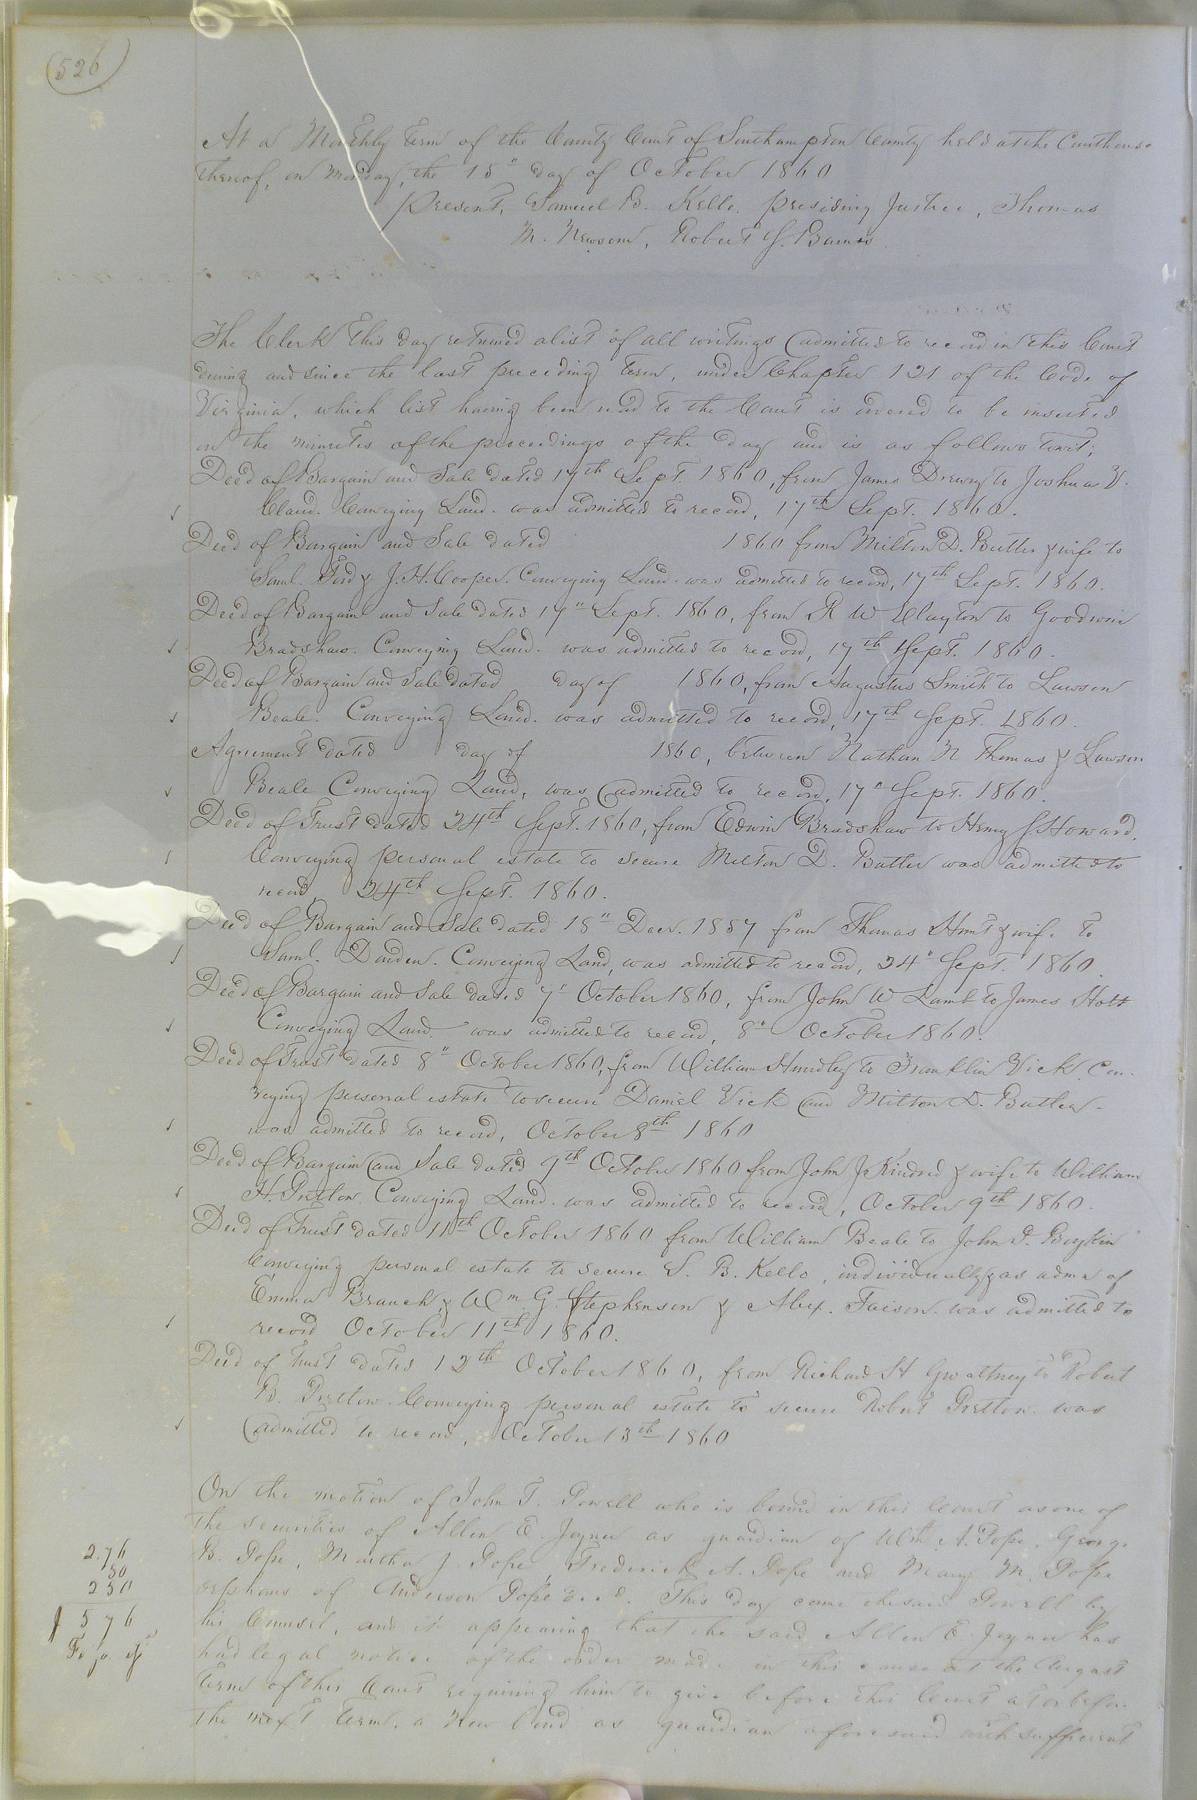 526
At a Monthly Term of the County Court of Southampton County held at the Courthouse
thereof, on Monday, the 15" day of October 1860
Present, Samuel B. Kello, presiding Justice, Thomas
M. Newsom, Robert S. Barnes.
The Clerk this day returned a list of all writings admitted to record in this Court
during and since the last preceding Term, under Chapter 121 of the Code of
Virginia, which list having been read to the Court is ordered to be inserted
in the minutes of the proceedings of the day and is as follows towit;
Deed of Bargain and Sale dated 17th Sept. 1860, from James Drewry to Joshua
Claud. Conveying Land. was admitted to record, 17th Sept. 1860.
Deed of Bargain and Sale dated 1860 from Milton D. Butler & wife to
Saml. Ford & J. H. Cooper. Conveying Land. was admitted to record, 17th Sept. 1860.
Deed of Bargain and Sale dated 17" Sept. 1860, from R W Clayton to Goodwin
Bradshaw. Conveying Land. was admitted to record, 17th Sept. 1860.
Deed of Bargain and Sale dated day of 1860, from Augustus Smith to Lawson
Beale. Conveying Land. was admitted to record, 17th Sept. 1860.
Agreement dated day of 1860, between Nathan N Thomas & Lawson
Beale Conveying Land, was admitted to record, 17" Sept. 1860.
Deed of Trust dated 24th Sept. 1860, from Edwin Bradshaw to Henry S Howard,
Conveying personal estate to secure Milton D. Butler was admitted to
record, 24th Sept. 1860.
Deed of Bargain and Sale dated 18" Decr. 1857 from Thomas Hunt & wife to
Saml. Darden. Conveying Land, was admitted to record, 24" Sept. 1860.
Deed of Bargain and Sale dated 7" October 1860, from John W Lamb to James Holt
Conveying Land. was admitted to record, 8" October 1860.
Deed of Trust dated 8" October 1860, from William Hundley to Franklin Vick. Con-
veying personal estate to secure Daniel Vick and Milton D. Butler-
was admitted to record, October 8th 1860
Deed of Bargain and Sale dated 9th October 1860 from John J Kindred & wife to William
H. Pretlow. Conveying Land. was admitted to record, October 9th 1860.
Deed of Trust dated 11th October 1860 from William Beale to John D. Boykin
Conveying personal estate to secure S. B. Kello, individually & as admr of
Emma Branch & Wm G. Stephenson & Alex. Faison. was admitted to
record October 11th 1860.
Deed of Trust dated 12th October 1860, from Richard H Gwaltney to Robert
B. Pretlow. Conveying personal estate to secure Robert Pretlow. was
admitted to record, October 13th 1860
On the motion of John T. Powell who is bound in this Court as one of
the securities of Allen E. Joyner as guardian of Wm A. Pope, George
B. Pope, Martha J. Pope, Frederick A. Pope and Mary M. Pope
orphans of Anderson Pope decd. This day came the said Powell by
his Counsel, and it appearing that the said Allen E. Joyner has
had legal notice of the order made in this cause at the August
Term of this Court requiring him to give before this Court at or before
the next Term, a new bond as guardian aforesaid with sufficient
2.76
50
250
$ 5 76